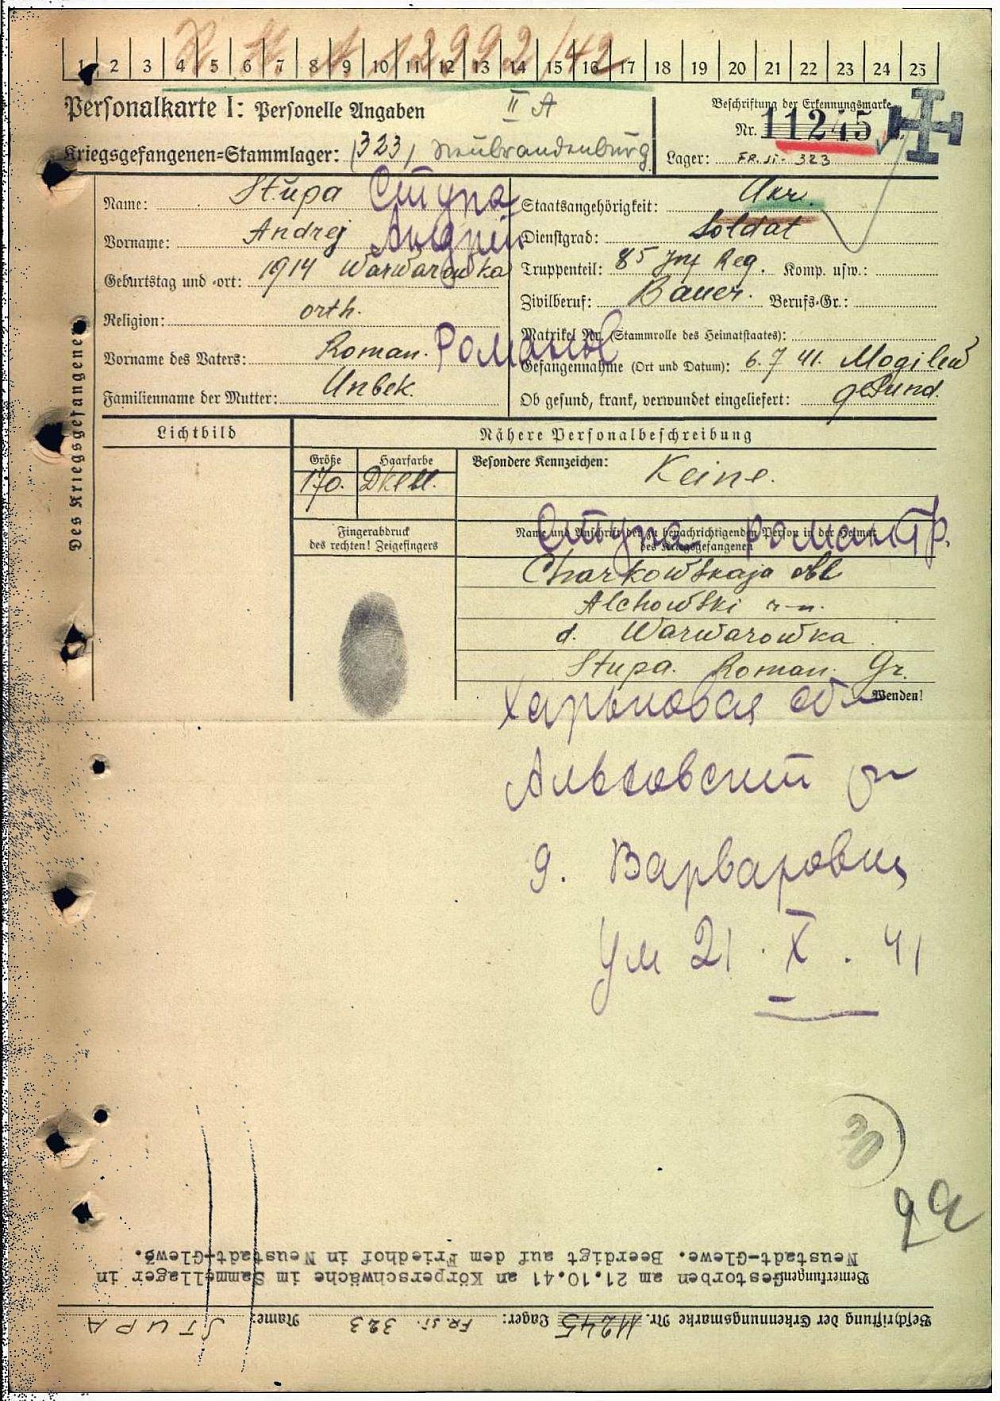 12992/42
1 2 3 4 5 6 7 8 9 10 11 12 13 14 15 16 17 18 19 20 21 22 23 24 25
Personalkarte I: Personelle Angaben
II A
Kriegsgefangenen=Stammlager: 323, Neubrandenburg
Beschriftung der Erkennungsmarke
Nr. 11245
Lager: Fr. St. 323
Des Kriegsgefangenen
Name: Stupa Ступа
Vorname: Andrej Андрей
Geburtstag und =ort: 1914 Warwarowka
Religion: orth.
Vorname des Vaters: Roman. Роман
Familienname der Mutter: Unbek.
Staatsangehörigkeit: Ukr.
Dienstgrad: Soldat
Truppenteil: 85 Inf Reg. Komp. usw.:
Zivilberuf: Bauer. Berufs=Gr.:
Matrikel Nr. (Stammrolle des Heimatstaates):
Gefangennahme (Ort und Datum): 6.7 41. Mogilew
Ob gesund, krank, verwundet eingeliefert: gesund.
Lichtbild
Nähere Personalbeschreibung
Größe
170.
Haarfarbe
Dkell.
Besondere Kennzeichen: Keine.
Fingerabdruck
des rechten! Zeigefingers
Name und Anschrift der zu benachrichtigenden Person in der Heimat
des Kriegsgefangenen
Ступа Роман Гр.
Charkowskaja obl
Alchowski r-n.
d. Warwarowka
Stupa. Roman. Gr.
Wenden!
Харьковая об
Альховский рн
д. Варваровка
Ум 21. X. 41
30
Bemerkungen: Gestorben am 21.10.41 an Körperschwäche im Sammellager in
Neustadt-Glewe. Beerdigt auf dem Friedhof in Neustadt-Glewe.
Beschriftung der Erkennungsmarke Nr. 11245 Lager: Fr. St. 323 Name: STUPA